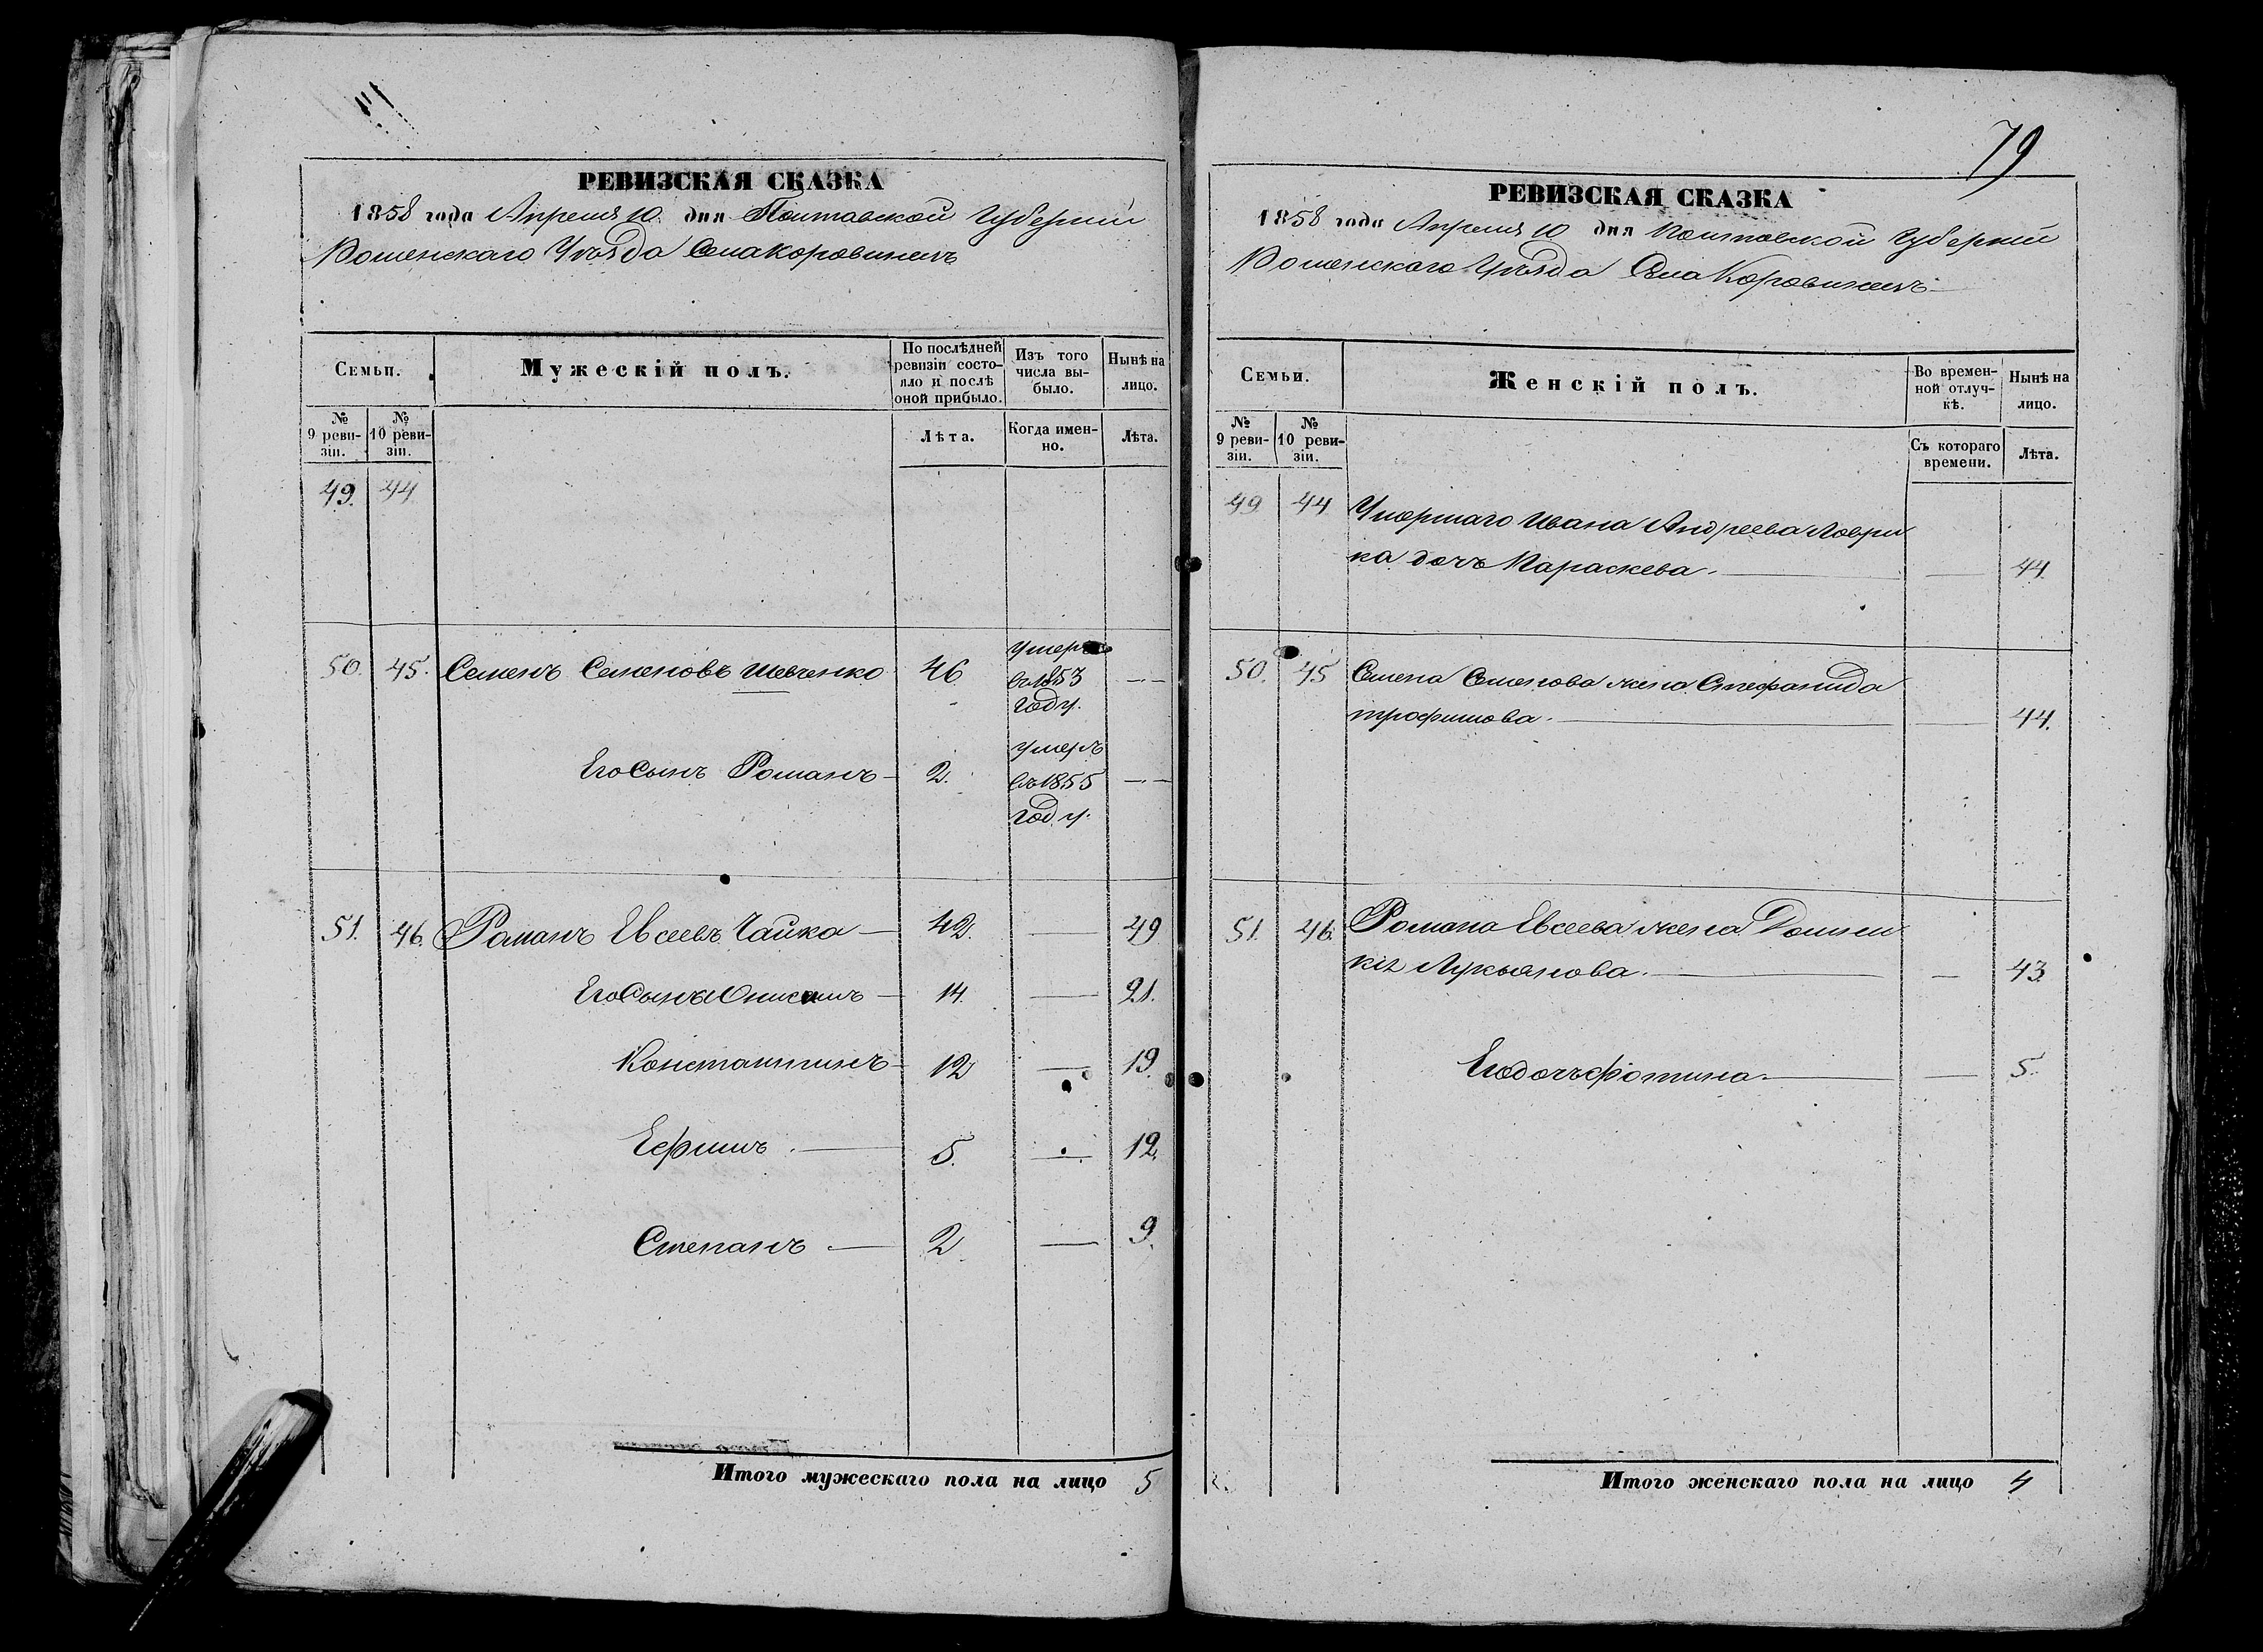 РЕВИЗСКАЯ СКАЗКА
1858 года Апреля 10 дня Полтавской Губернии
Роменскаго Уѣзда Села Коровинецъ
Семьи.
Мужескій полъ.
По послѣдней ревизіи состояло и послѣ оной прибыло.
Изъ того числа выбыло.
Нынѣ на лицо.
№ 9 ревизіи.
№ 10 ревизіи.
Лѣта.
Когда именно.
Лѣта.
49. 44
50. 45. Семенъ Семеновъ Шевченко 46 умеръ въ 1853 году. —
Его Сынъ Романъ — 2. умеръ въ 1855 году. —
51. 46. Романъ Евсеевъ Чайка — 42. — 49
Его Сынъ Онисимъ — 14. — 21.
Константинъ — 12 — 19.
Ефимъ. — 5. — 12.
Степанъ. — 2 — 9.
Итого мужескаго пола на лицо 5
79
РЕВИЗСКАЯ СКАЗКА
1858 года Апреля 10 дня Полтавской Губернии
Роменскаго Уѣзда Села Коровинецъ
Семьи.
Женскій полъ.
Во временной отлучкѣ.
Нынѣ на лицо.
№ 9 ревизіи.
№ 10 ревизіи.
Съ котораго времени.
Лѣта.
49 44 Умершаго Ивана Андреева Лаври
ка дочь Параскева. — — 44.
50. 45 Семена Семенова жена Стефанида
трофимова. — — 44.
51. 46. Романа Евсеева жена Домни
кія Лукьянова. — — 43.
Его дочь Фотина. — — 5.
Итого женскаго пола на лицо 4